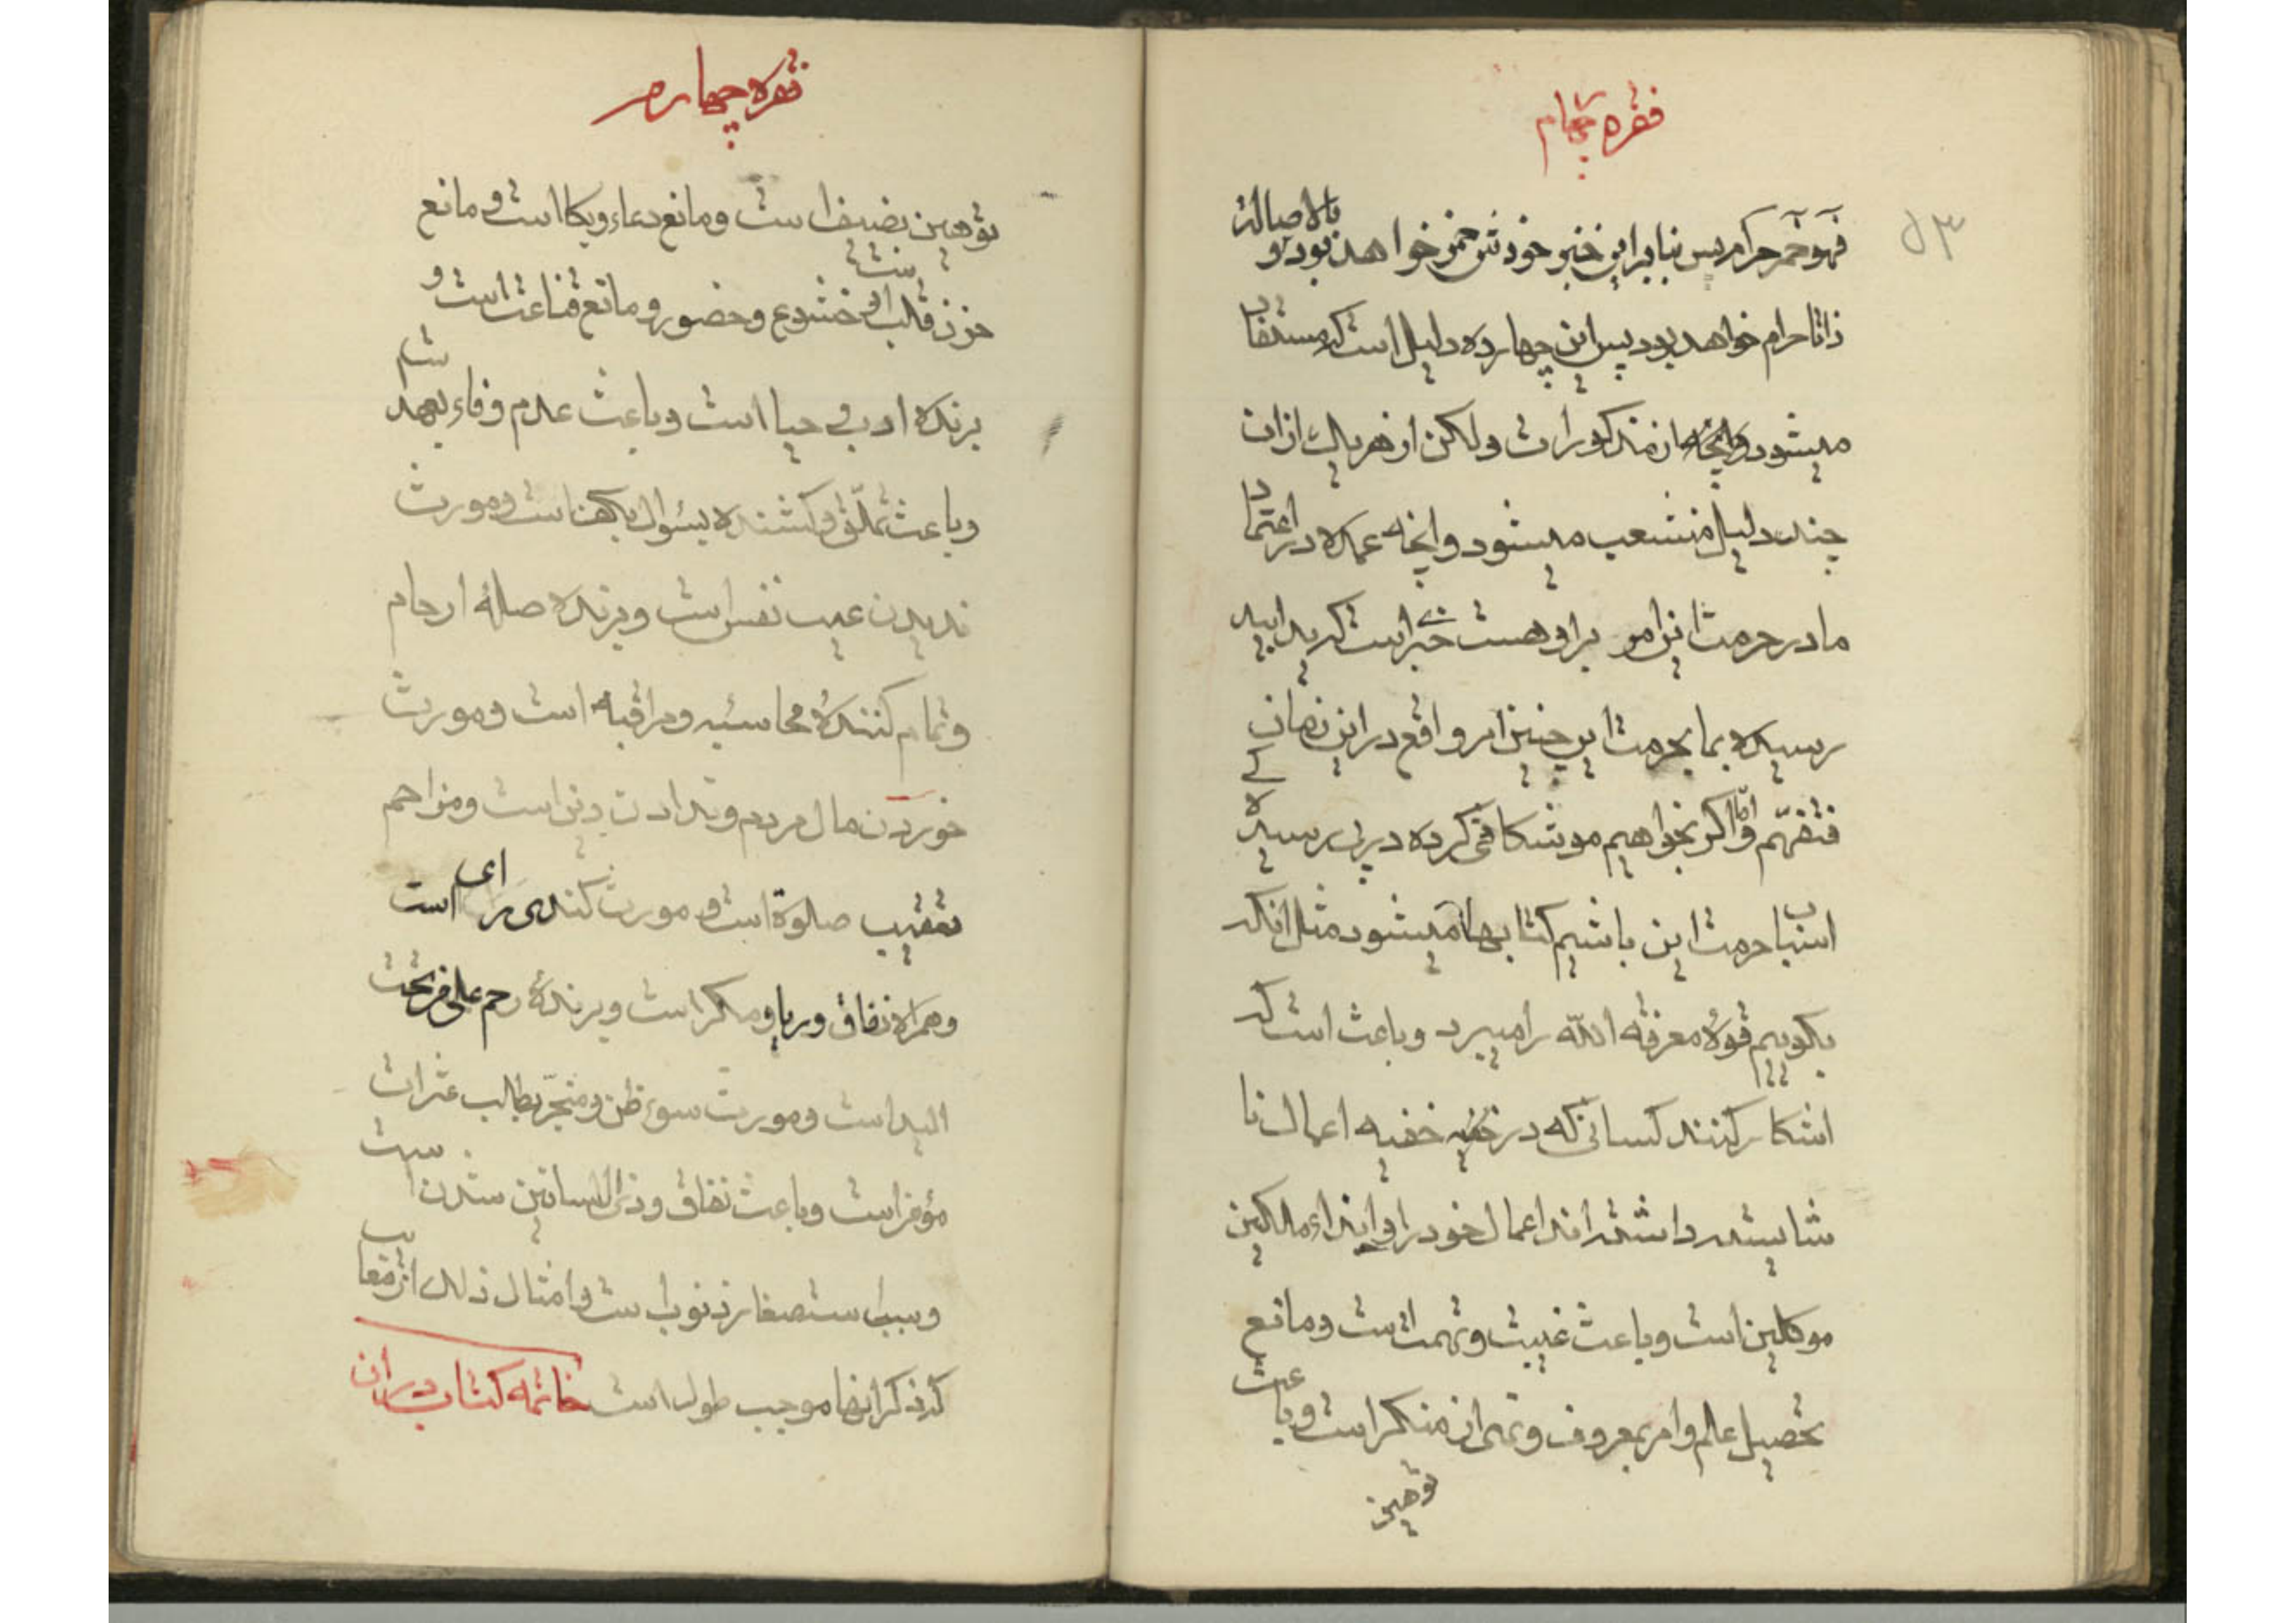 فقره چهارم
۵۳
فهو خمر حرام پس بنابراین خبر خودش خمر خواهد بود و بالاصاله
ذاتا حرام خواهد بود پس این چهارده دلیل است که مستفاد
میشود از مذکورات ولکن از هر یک ازان
چند دلیل منشعب میشود وانچه عمده در اعتماد
ما در حرمت این امر براو هست خبر است که
رسیده بما بحرمت این چنین امر واقع در این زمان کے
فتفهّم وامّا اکر بخواهیم موشکافی کرده درپی رسیده
اسباب حرمت این باشیم کتابها میشود مثل انکه
بکوییم قوه معرفة الله را میبرد و باعث است که
اشکار کنند کسانی که در خفیه اعمال نا
شایسته داشته‌اند اعمال خود را و ایذاء ملکین
موکلین است و باعث غیبت و تهمت است و مانع
تحصیل علم و امر بمعروف و نهی از منکر است و باعث
توهین
فقره چهارم
توهین بضیف است و مانع دعاء و بکا است و مانع
حزن قلب و خشوع و حضور و مانع قناعت است و
برنده ادب و حیا است و باعث عدم وفاء بعهد
و باعث تملّق و کشنده بسؤال بکف است و مورث
ندیدن عیب نفس است و برنده صله ارحام
و تمام کننده محاسبه و مراقبه است و مورث
خوردن مال مردم و ندادن دین است و مزاحم
تعقیب صلوة است و مورث کندی رای است
و همراه نفاق و ریا و مکر است و برنده رحم علی من تحت
الید است و مورث سوء ظن و منجّر بطلب عثرات
مؤمن است و باعث نفاق و ذی اللسانین شدن است
و سبب استصغار ذنوب است و امثال ذلک از معایب
که ذکر انها موجب طول است خاتمه کتاب در ان